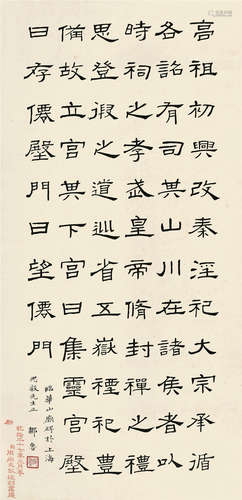 高祖初興改秦淫祀大宗承循
各詔有司其山川在諸侯者以
時祠之孝武皇帝脩封禪之禮
思登徦之道巡省五嶽禋祀豐
備故立宮其下宮曰集靈宮壂
曰存僊壂門曰望僊門
臨華山廟碑於上海
先生正 魯